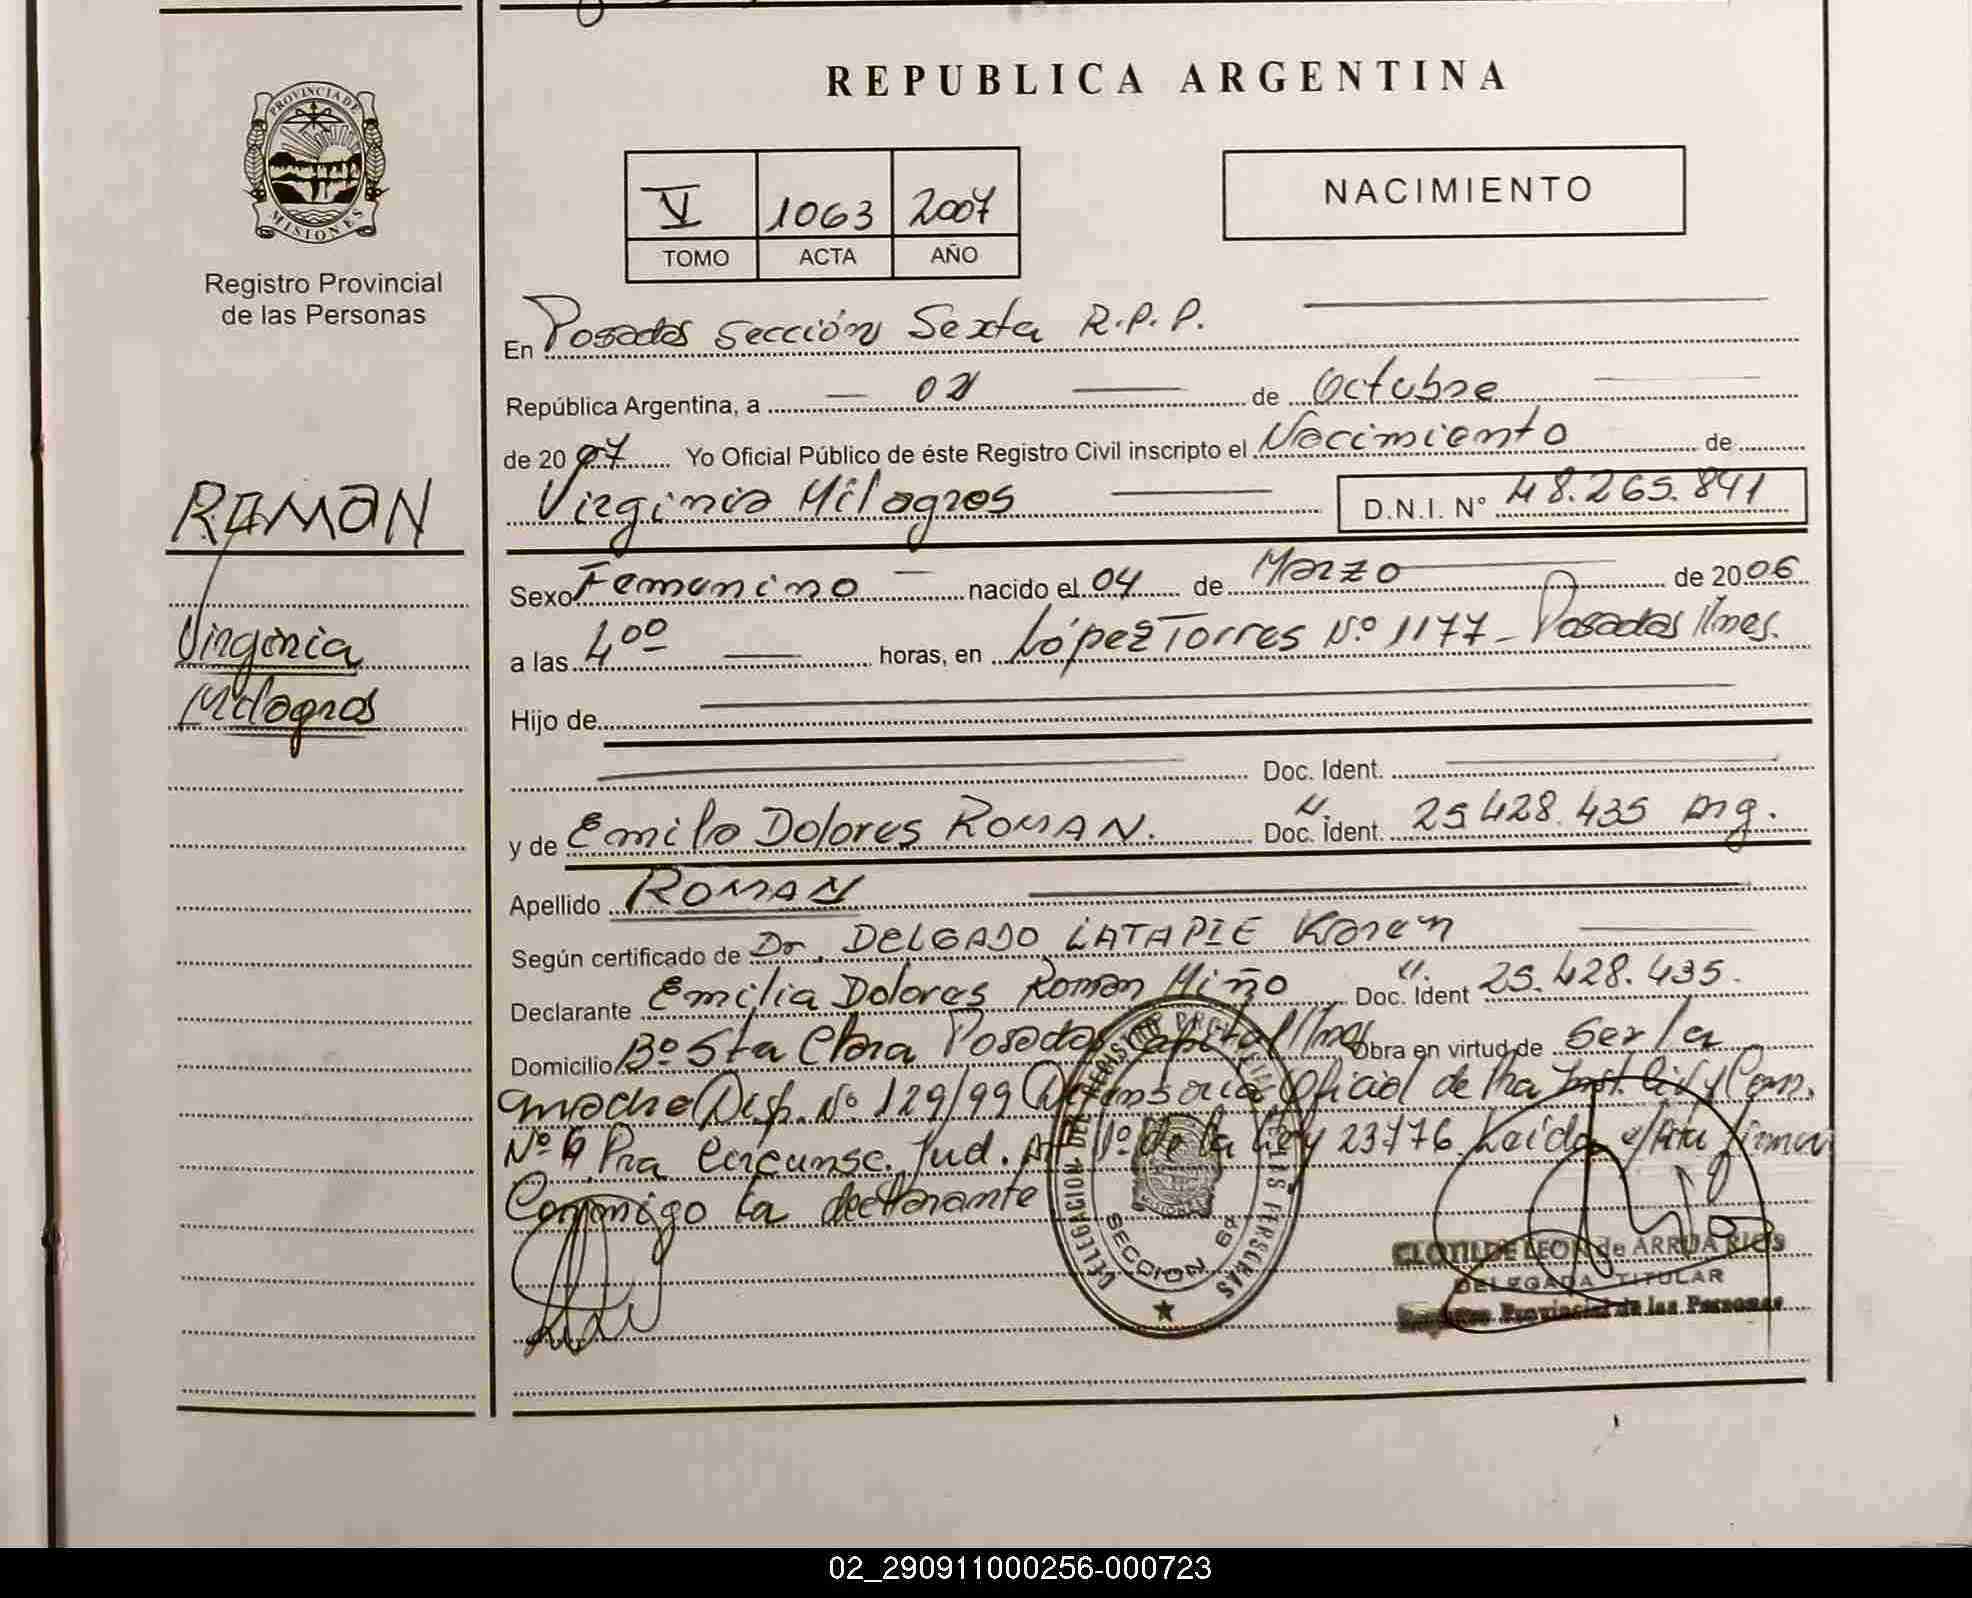 REPUBLICA ARGENTINA
PROVINCIA DE
MISIONES
Registro Provincial
de las Personas
V 1063 2007
TOMO ACTA AÑO
NACIMIENTO
En Posadas Sección Sexta R.P.P.
República Argentina, a 02 de Octubre
de 2007 Yo Oficial Público de éste Registro Civil inscripto el Nacimiento de
Virginia Milagros D.N.I. N° 48.265.841
ROMAN
Virginia
Milagros
Sexo Femenino nacido el 04 de Marzo de 2006
a las 4 00 horas, en López Torres Nº 1177 - Posadas Mnes.
Hijo de
Doc. Ident.
y de Emilia Dolores ROMAN. Doc. Ident. 25.428.435 Arg.
Apellido ROMAN
Según certificado de Dr. DELGADO LATAPIE Karen
Declarante Emilia Dolores Roman Miño Doc. Ident 25.428.435.
Domicilio Bº Sta Clara Posadas Capital Mnes Obra en virtud de Ser la
madre Disp. Nº 129/99 Defensoria Oficial de 1ra Inst. Civ y Com.
Nº Pra Circunsc. Jud. Art 1º de la Ley 23776. Leida el Acta firma
Conmigo la declarante
DELEGACION DEL REGISTRO PROVINCIAL DE LAS PERSONAS
SECCION 6ª
CLOTILDE LEON de ARRUA RIOS
DELEGADA TITULAR
Registro Provincial de las Personas
02_290911000256-000723